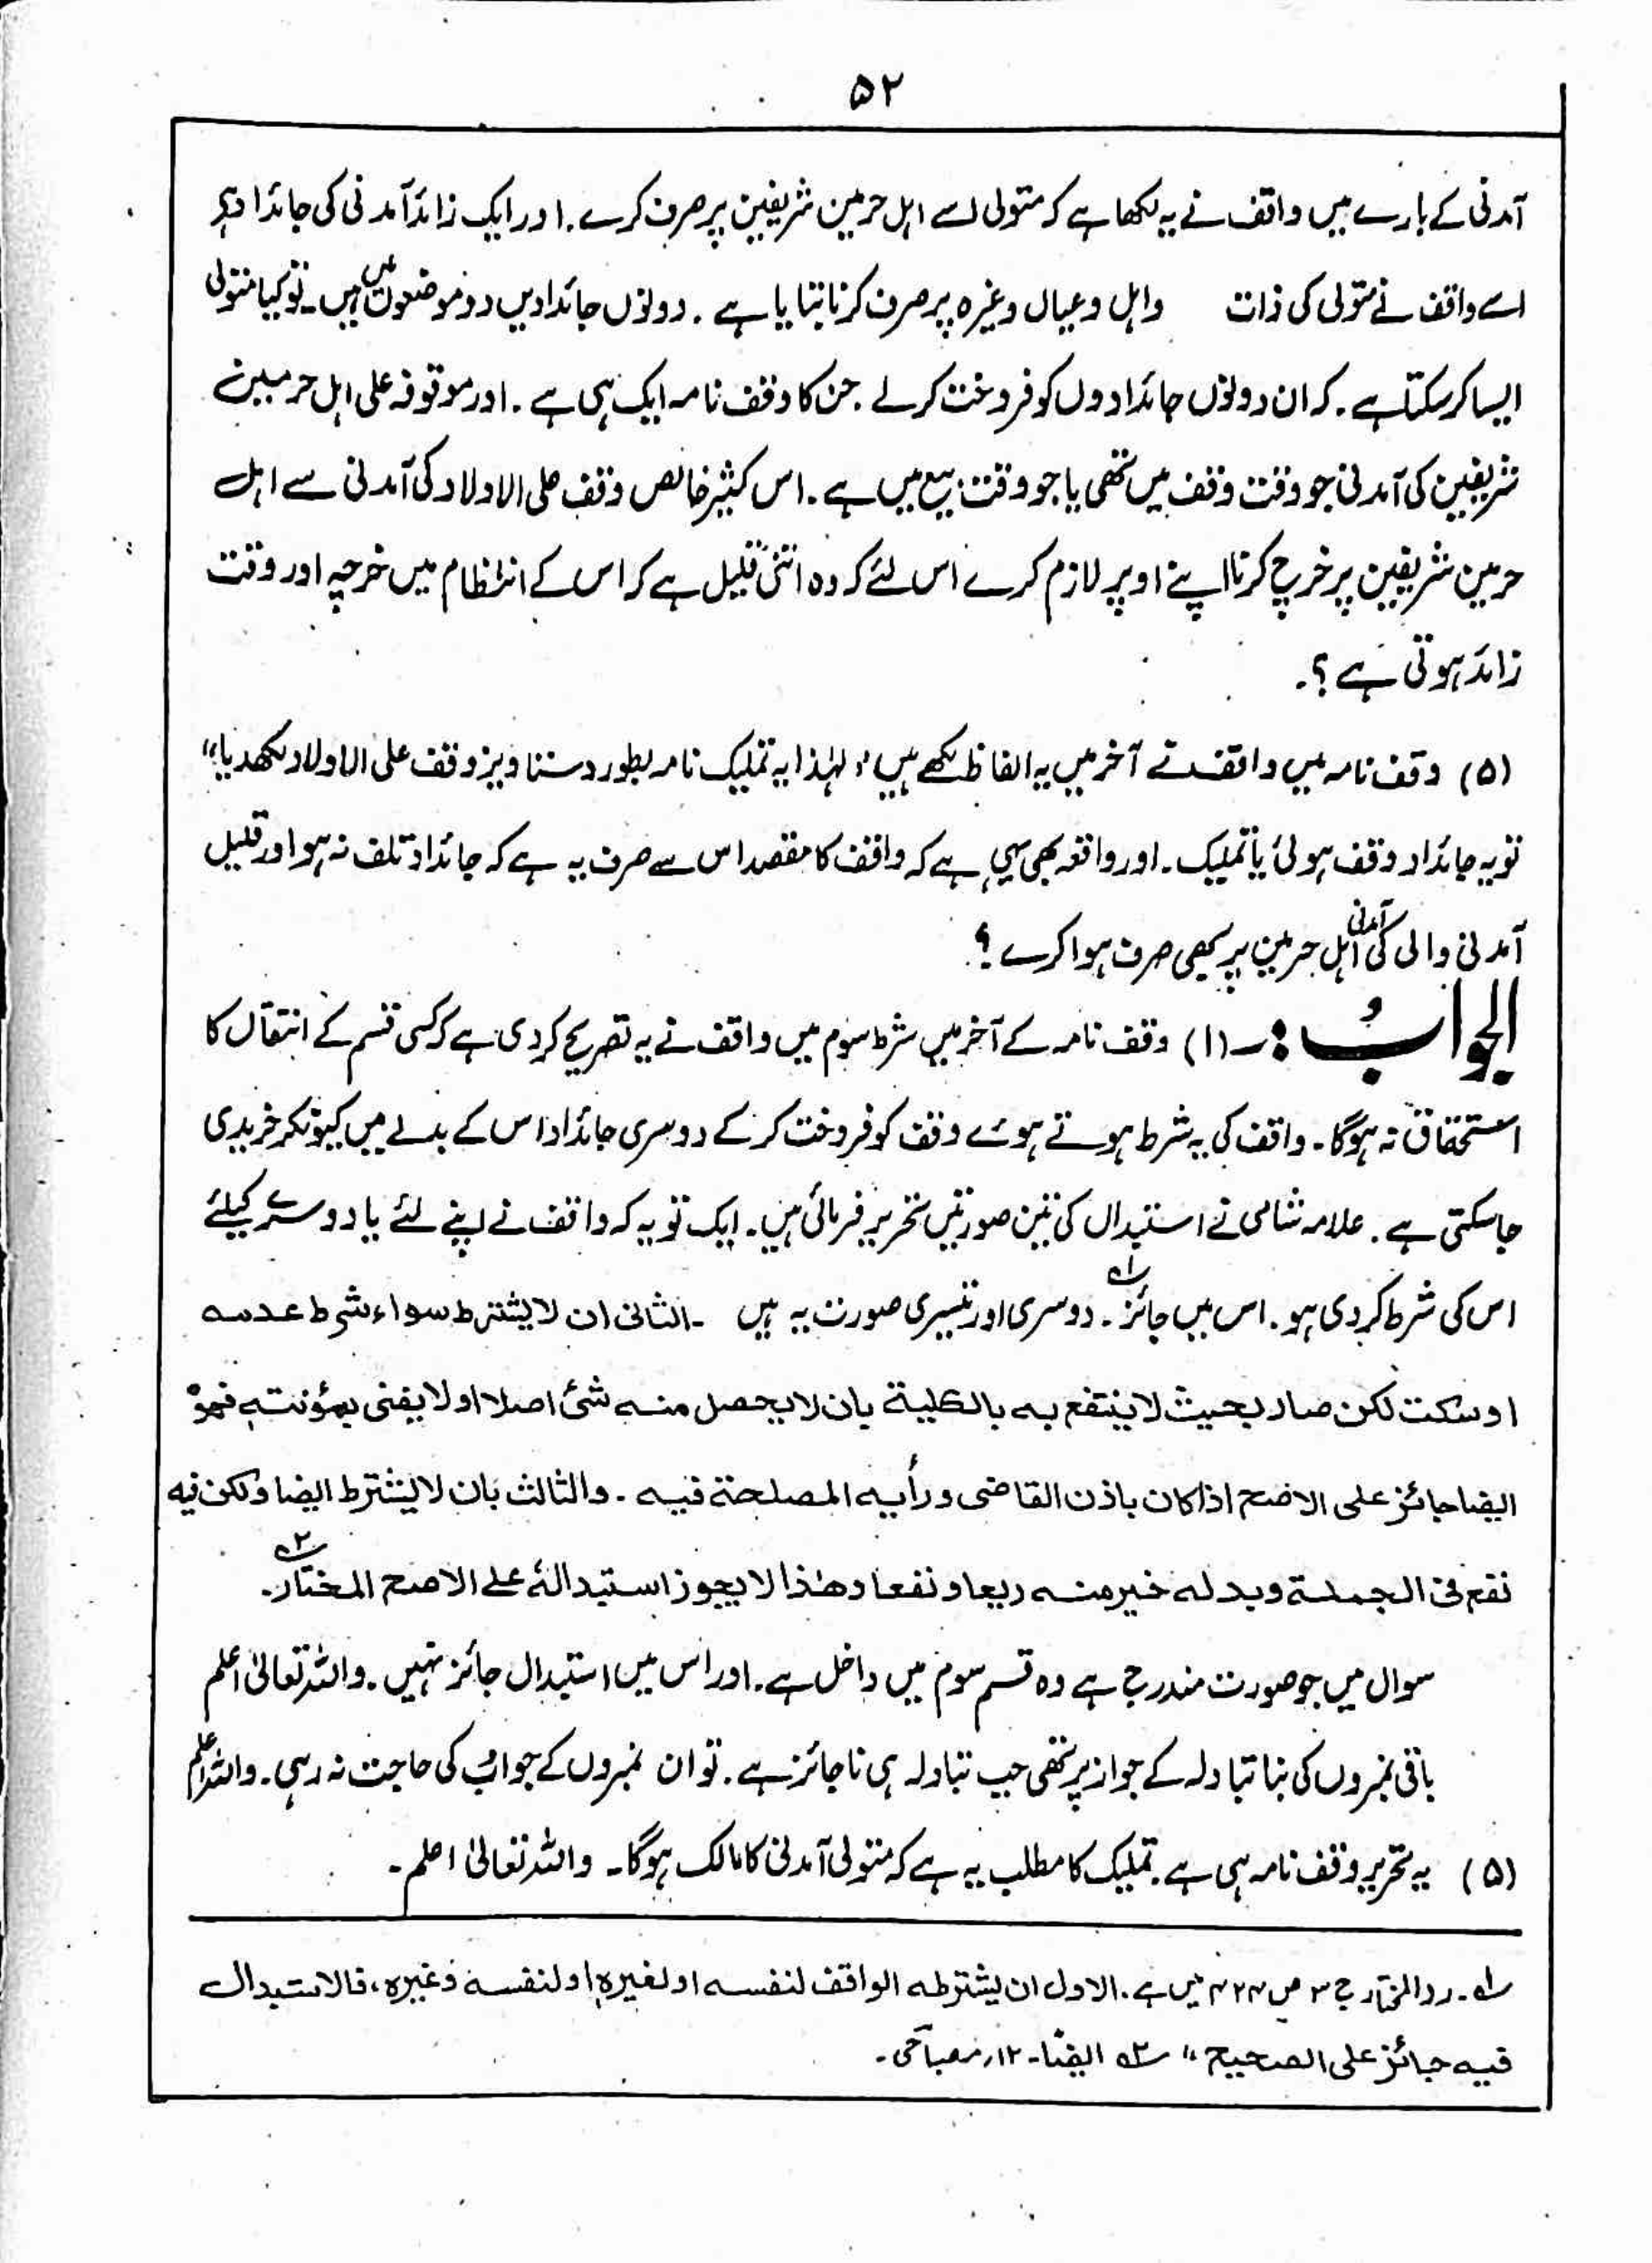 ۵۲
آمدنی کے بارے میں واقف نے یہ لکھا ہے کہ متولی اسے اہل حرمین شریفین پر صرف کرے۔ اور ایک زائد آمدنی کی جائداد ہے
اسے واقف نے متولی کی ذات واہل وعیال وغیرہ پر صرف کرنا بتایا ہے۔ دونوں جائدادیں دو موضعوں میں ہیں۔ تو کیا متولی
ایسا کرسکتا ہے۔ کہ ان دونوں جائدادوں کو فروخت کرلے۔ جن کا وقف نامہ ایک ہی ہے۔ اور موقوفہ علی اہل حرمین
شریفین کی آمدنی جو وقت وقف میں تھی یا جو وقت بیع میں ہے۔ اس کثیر خالص وقف علی الاولاد کی آمدنی سے اہل
حرمین شریفین پر خرچ کرنا اپنے اوپر لازم کرے اس لئے کہ وہ اتنی قلیل ہے کہ اس کے انتظام میں خرچہ اور وقت
زائد ہوتی ہے؟۔
(۵) وقف نامہ میں واقف نے آخر میں یہ الفاظ لکھے ہیں، لہٰذا یہ تملیک نامہ بطور دستاویز وقف علی الاولاد لکھدیا،،
تو یہ جائداد وقف ہوئی یا تملیک۔ اور واقعہ بھی یہی ہے کہ واقف کا مقصد اس سے صرف یہ ہے کہ جائداد تلف نہ ہو اور قلیل
آمدنی والی کی آمدنی اہل حرمین پر بھی صرف ہوا کرے؟
الجوابُ:۔ (۱) وقف نامہ کے آخر میں شرط سوم میں واقف نے یہ تصریح کردی ہے کہ کسی قسم کے انتقال کا
استحقاق نہ ہوگا۔ واقف کی یہ شرط ہوتے ہوئے وقف کو فروخت کرکے دوسری جائداد اس کے بدلے میں کیونکر خریدی
جاسکتی ہے۔ علامہ شامی نے استبدال کی تین صورتیں تحریر فرمائی ہیں۔ ایک تو یہ کہ واقف نے اپنے لئے یا دوسرے کیلئے
اس کی شرط کردی ہو۔ اس میں جائز۔ ؎۱ دوسری اور تیسری صورت یہ ہیں ۔ الثانی ان لا یشترط سواء شرط عدمہ
او سکت لکن صار بحیث لا ینتفع بہ بالکلیۃ بان لا یحصل منہ شئ اصلا او لا یفنی بمؤنتہ فھو
ایضا جائز علی الاصح اذا کان باذن القاضی ورأیہ المصلحۃ فیہ۔ والثالث بان لا یشترط ایضا ولکن فیہ
نفع فی الجملۃ وبدلہ خیر منہ ریعا ونفعا وھٰذا لا یجوز استبدالہ علی الاصح المختار۔ ؎۲
سوال میں جو صورت مندرج ہے وہ قسم سوم میں داخل ہے۔ اور اس میں استبدال جائز نہیں۔ واللہ تعالیٰ اعلم
باقی نمبروں کی بنا تبادلہ کے جواز پر تھی جب تبادلہ ہی ناجائز ہے۔ تو ان نمبروں کے جواب کی حاجت نہ رہی۔ واللہ اعلم
(۵) یہ تحریر وقف نامہ ہی ہے۔ تملیک کا مطلب یہ ہے کہ متولی آمدنی کا مالک ہوگا۔ واللہ تعالیٰ اعلم۔
؎۱۔ ردالمختار ج ۳ ص ۴۲۴ میں ہے۔ الاول ان یشترطہ الواقف لنفسہ او لغیرہ او لنفسہ وغیرہ، فالاستبدال
فیہ جائز علی الصحیح،، ؎۲ ایضًا۔ ۱۲، مصباحی۔